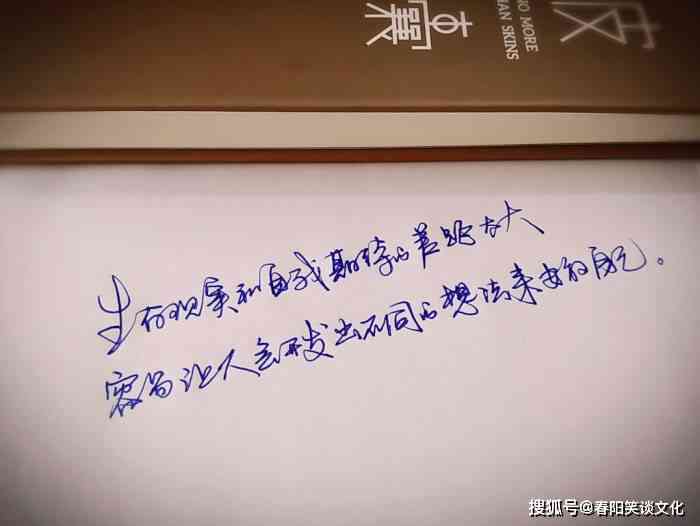 MORE
SKINS
生存现实和自我期待的差距太大
容易让人会开发出不同的想法来安放自己。
搜狐号@春阳笑谈文化